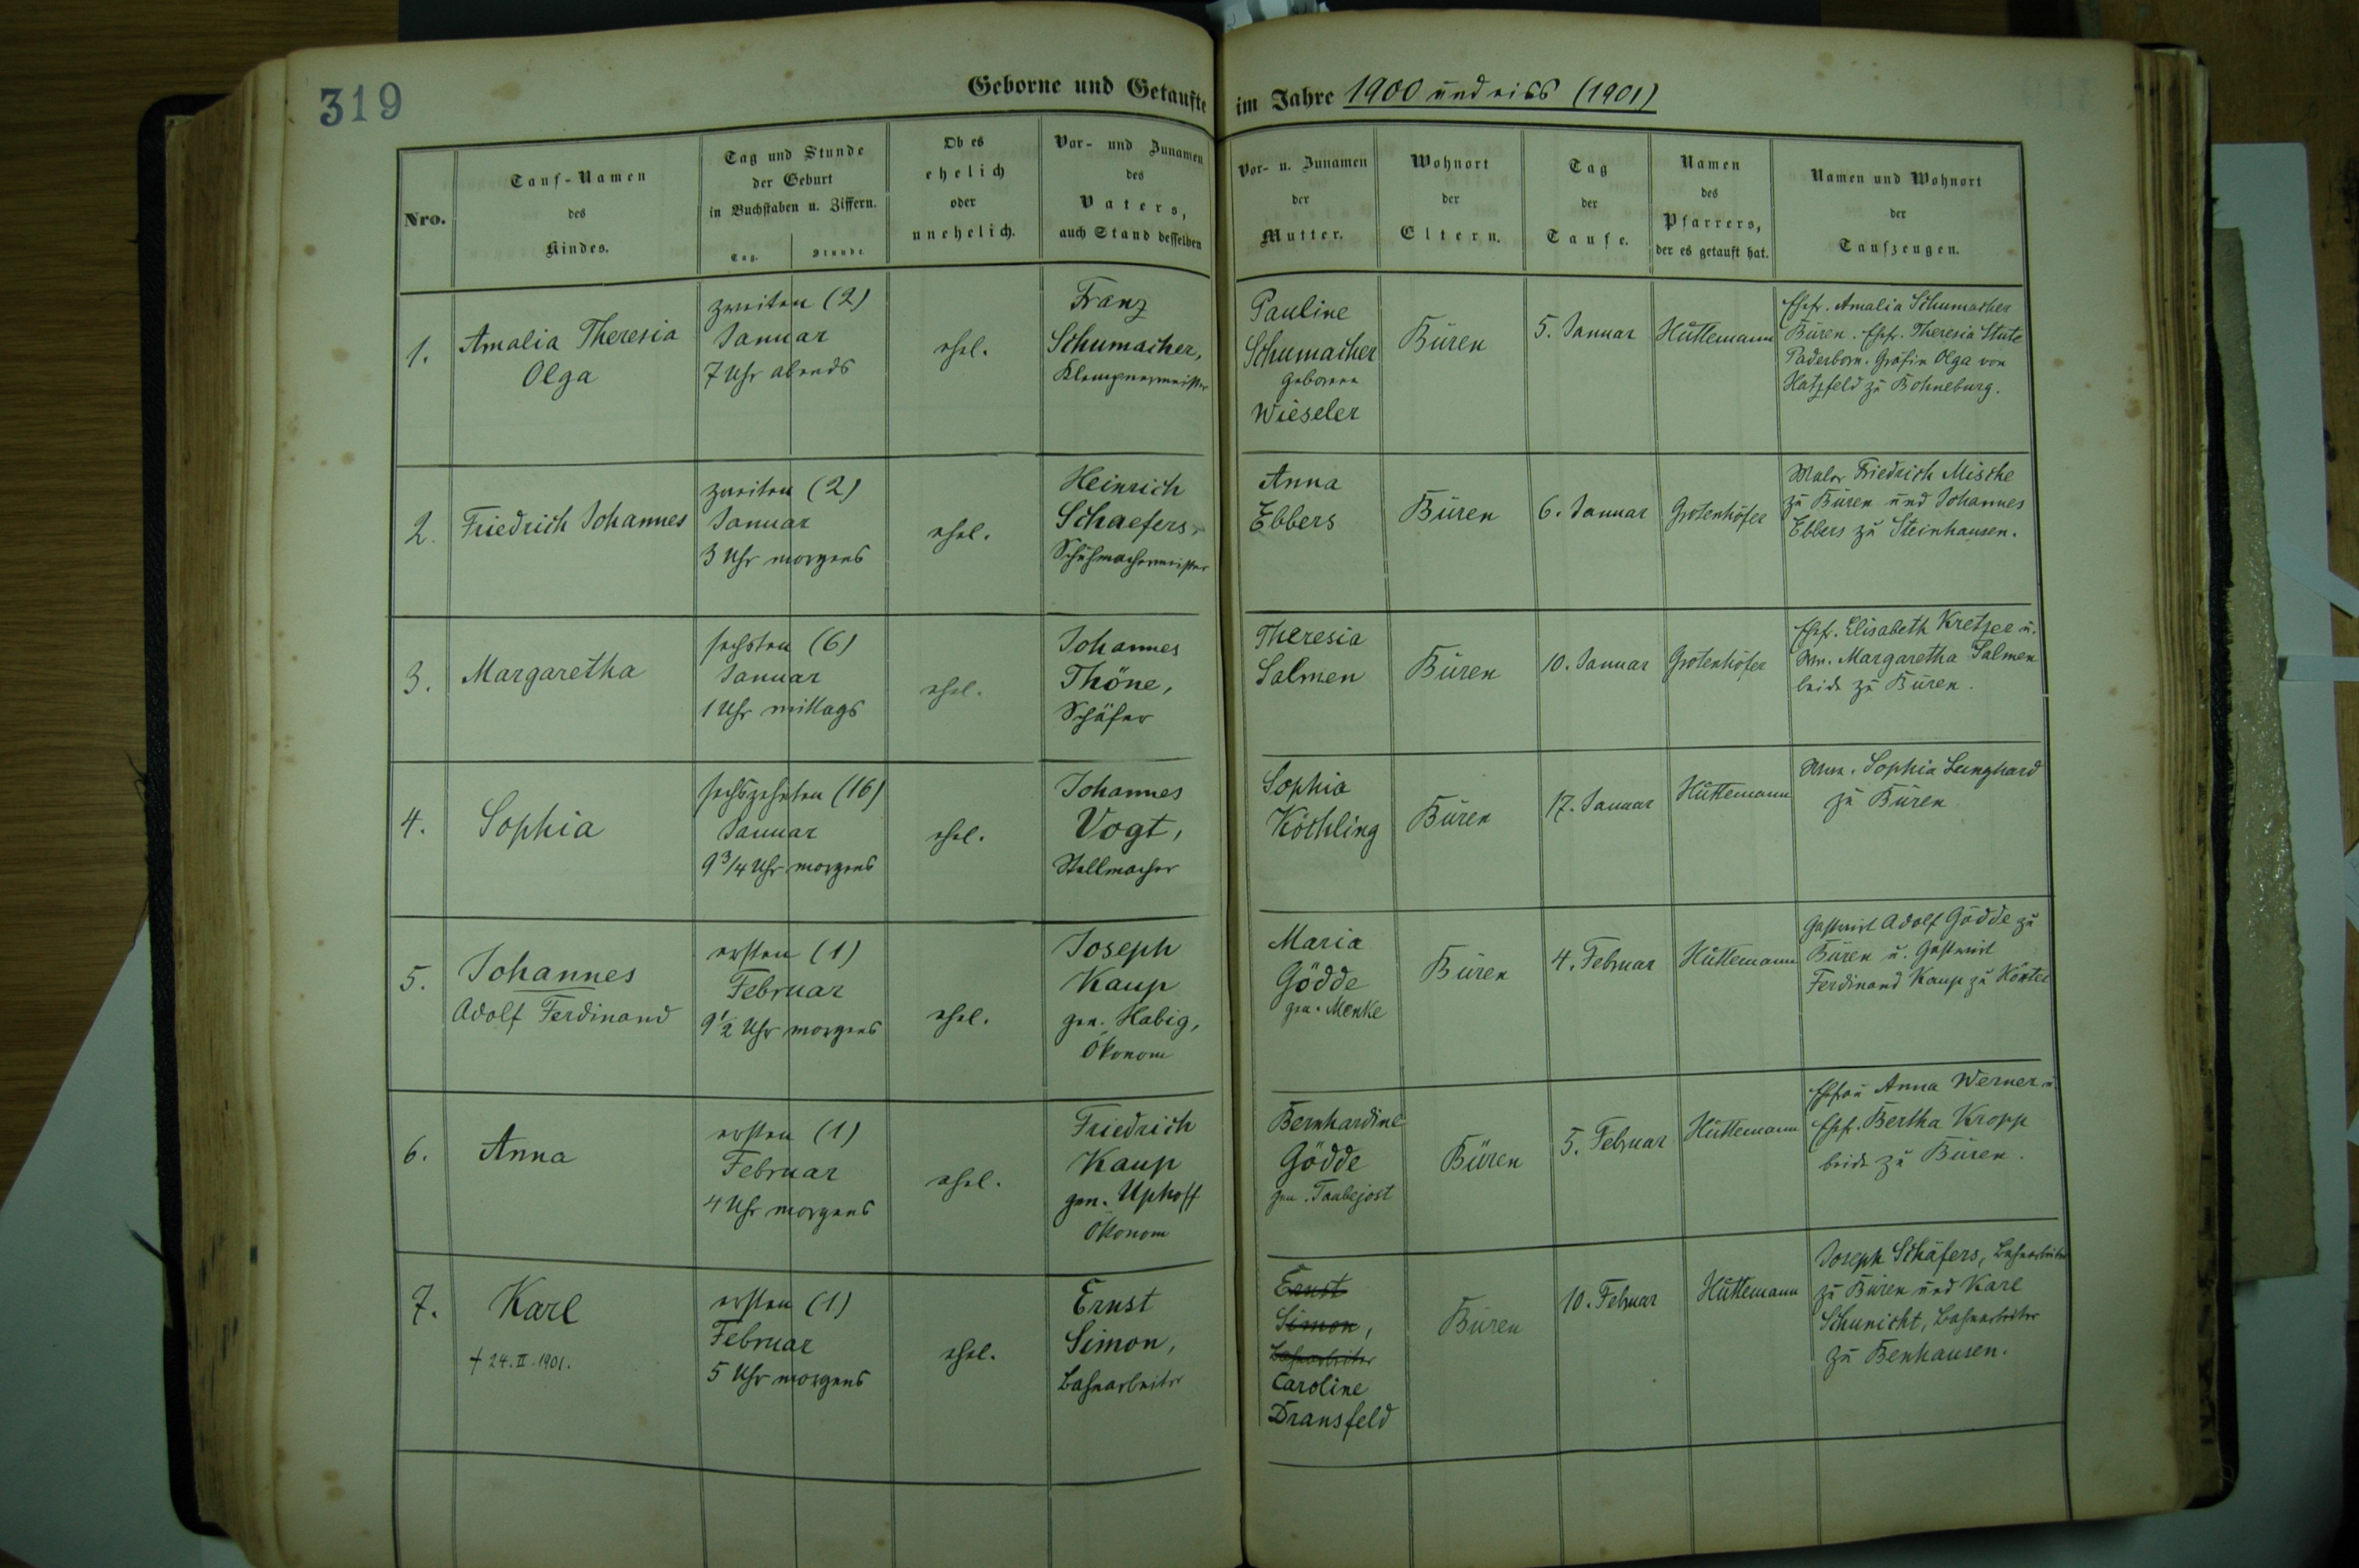 319
Geborne und Getaufte im Jahre 1900 und eins (1901)
Nro.
Tauf-Namen
des
Kindes.
Tag und Stunde
der Geburt
in Buchstaben u. Ziffern.
Tag. Stunde
Ob es
ehelich
oder
unehelich.
Vor- und Zunamen
des
Vaters,
auch Stand desselben
Vor- u. Zunamen
der
Mutter.
Wohnort
der
Eltern.
Tag
der
Taufe.
Namen
des
Pfarrers,
der es getauft hat.
Namen und Wohnort
der
Taufzeugen.
1.
Amalia Theresia
Olga
zweiten (2)
Januar
7 Uhr abends
ehel.
Franz
Schumacher,
Klempnermeister
Pauline
Schumacher
geborene
Wieseler
Büren
5. Januar
Hüttemann
Ehefr. Amalia Schumacher
Büren. Ehefr. Theresia Stute
Paderborn. Gräfin Olga von
Hatzfeld zu Bohneburg.
2.
Friedrich Johannes
zweiten (2)
Januar
3 Uhr morgens
ehel.
Heinrich
Schaefers,
Schuhmachermeister
Anna
Ebbers
Büren
6. Januar
Grotenhöfer
Maler Friedrich Mische
zu Büren und Johannes
Ebbers zu Steinhausen.
3.
Margaretha
sechsten (6)
Januar
1 Uhr mittags
ehel.
Johannes
Thöne,
Schäfer
Theresia
Salmen
Büren
10. Januar
Grotenhöfer
Ehefr. Elisabeth Kretzer u.
Ww. Margaretha Salmen
beide zu Büren.
4.
Sophia
sechszehnten (16)
Januar
9 3/4 Uhr morgens
ehel.
Johannes
Vogt,
Stellmacher
Sophia
Köchling
Büren
17. Januar
Hüttemann
Sophia Lunghard
zu Büren
5.
Johannes
Adolf Ferdinand
ersten (1)
Februar
9 1/2 Uhr morgens
ehel.
Joseph
Kaup
gen. Habig,
Ökonom
Maria
Gödde
gen. Menke
Büren
4. Februar
Hüttemann
Gastwirt Adolf Gödde zu
Büren u. Gastwirt
Ferdinand Kaup zu
6.
Anna
ersten (1)
Februar
4 Uhr morgens
ehel.
Friedrich
Kaup
gen. Uphoff
Ökonom
Bernhardine
Gödde
gen. Taubejost
Büren
5. Februar
Hüttemann
Ehefrau Anna Werner u.
Ehefr. Bertha Kropp
beide zu Büren.
7.
Karl
† 24. II. 1901.
ersten (1)
Februar
5 Uhr morgens
ehel.
Ernst
Simon,
Bahnarbeiter
Ernst
Simon,
Bahnarbeiter
Caroline
Dransfeld
Büren
10. Februar
Hüttemann
Joseph Schäfers, Bahnarbeiter
zu Büren und Karl
Schunicht, Bahnarbeiter
zu Benhausen.